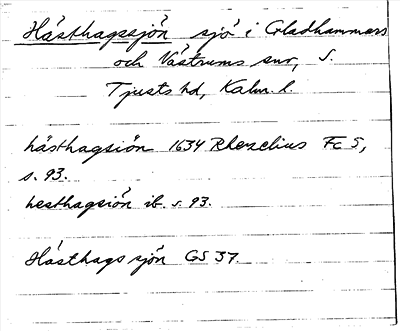 Hästhagssjön sjö i Gladhammars
och Västrums snr, S.
Tjusts hd, Kalm. l.
hästhagsiön 1634 Rhezelius Fc 5,
s. 93.
hesthagsiön ib. s. 93.
Hästhags sjön GS 37.